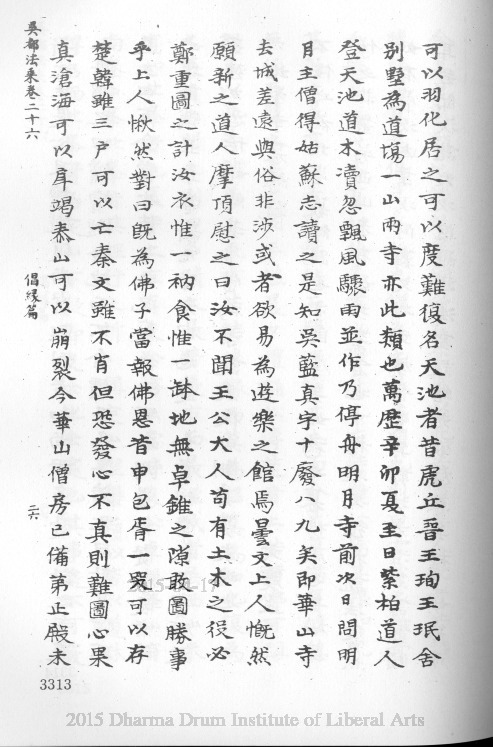 可以羽化居之可以度難復名天池者昔虎丘晉王珣王珉舍
別墅為道場一山兩寺亦此類也萬歷辛卯夏至日紫柏道人
登天池道木瀆忽飄風驟雨並作乃停舟明月寺前次日問明
月主僧得姑蘇志讀之是知吳藍真字十廢八九矣即華山寺
去城差遠與俗非涉或者欲易為遊樂之館焉曇文上人慨然
願新之道人摩頂慰之曰汝不聞王公大人苟有土木之役必
鄭重圖之計汝衣惟一衲食惟一缽地無卓錐之隙敢圖勝事
乎上人愀然對曰既為佛子當報佛恩昔申包胥一哭可以存
楚韓雖三戶可以亡秦文雖不肖但恐發心不真則難圖心果
真滄海可以卓竭泰山可以崩裂今華山僧房已備第正殿未
吳都法乘卷二十六
倡緣篇
二六
3313
2015-09-17
2015 Dharma Drum Institute of Liberal Arts